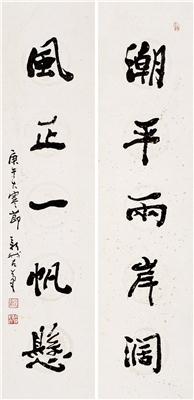 潮平兩岸闊
風正一帆懸
庚午大寒節